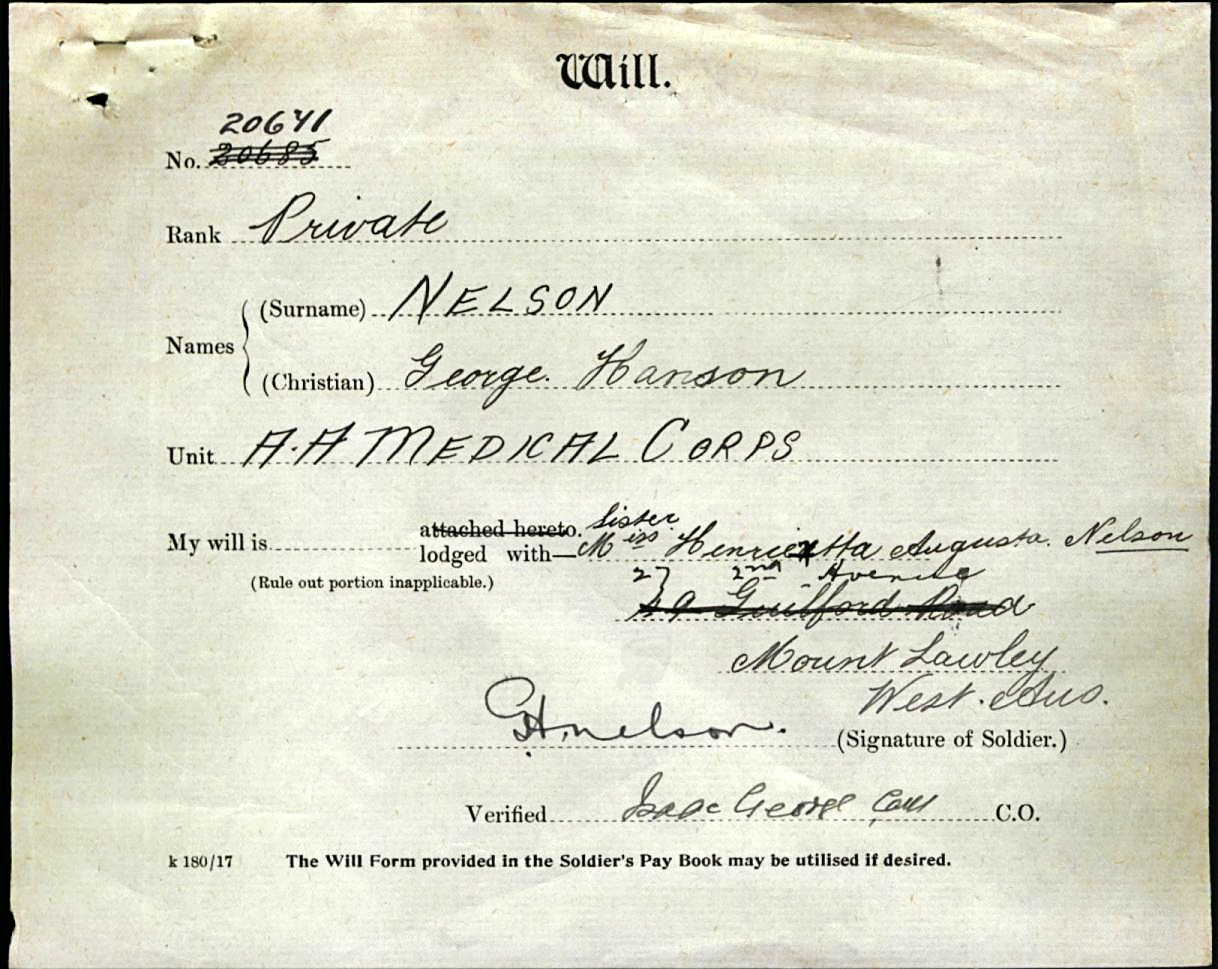 Will.
20641
No. 20685
Rank Private
Names
(Surname) NELSON
(Christian) George. Hanson
Unit A.A MEDICAL CORPS
Sister
My will is attached hereto.
lodged with— Miss Henrietta Augusta. Nelson
(Rule out portion inapplicable.)
27 2nd Avenue
Guilford Road
Mount Lawley
West. Aus.
G.H. nelson.
(Signature of Soldier.)
Verified Isaac George C.O.
k 180/17 The Will Form provided in the Soldier's Pay Book may be utilised if desired.